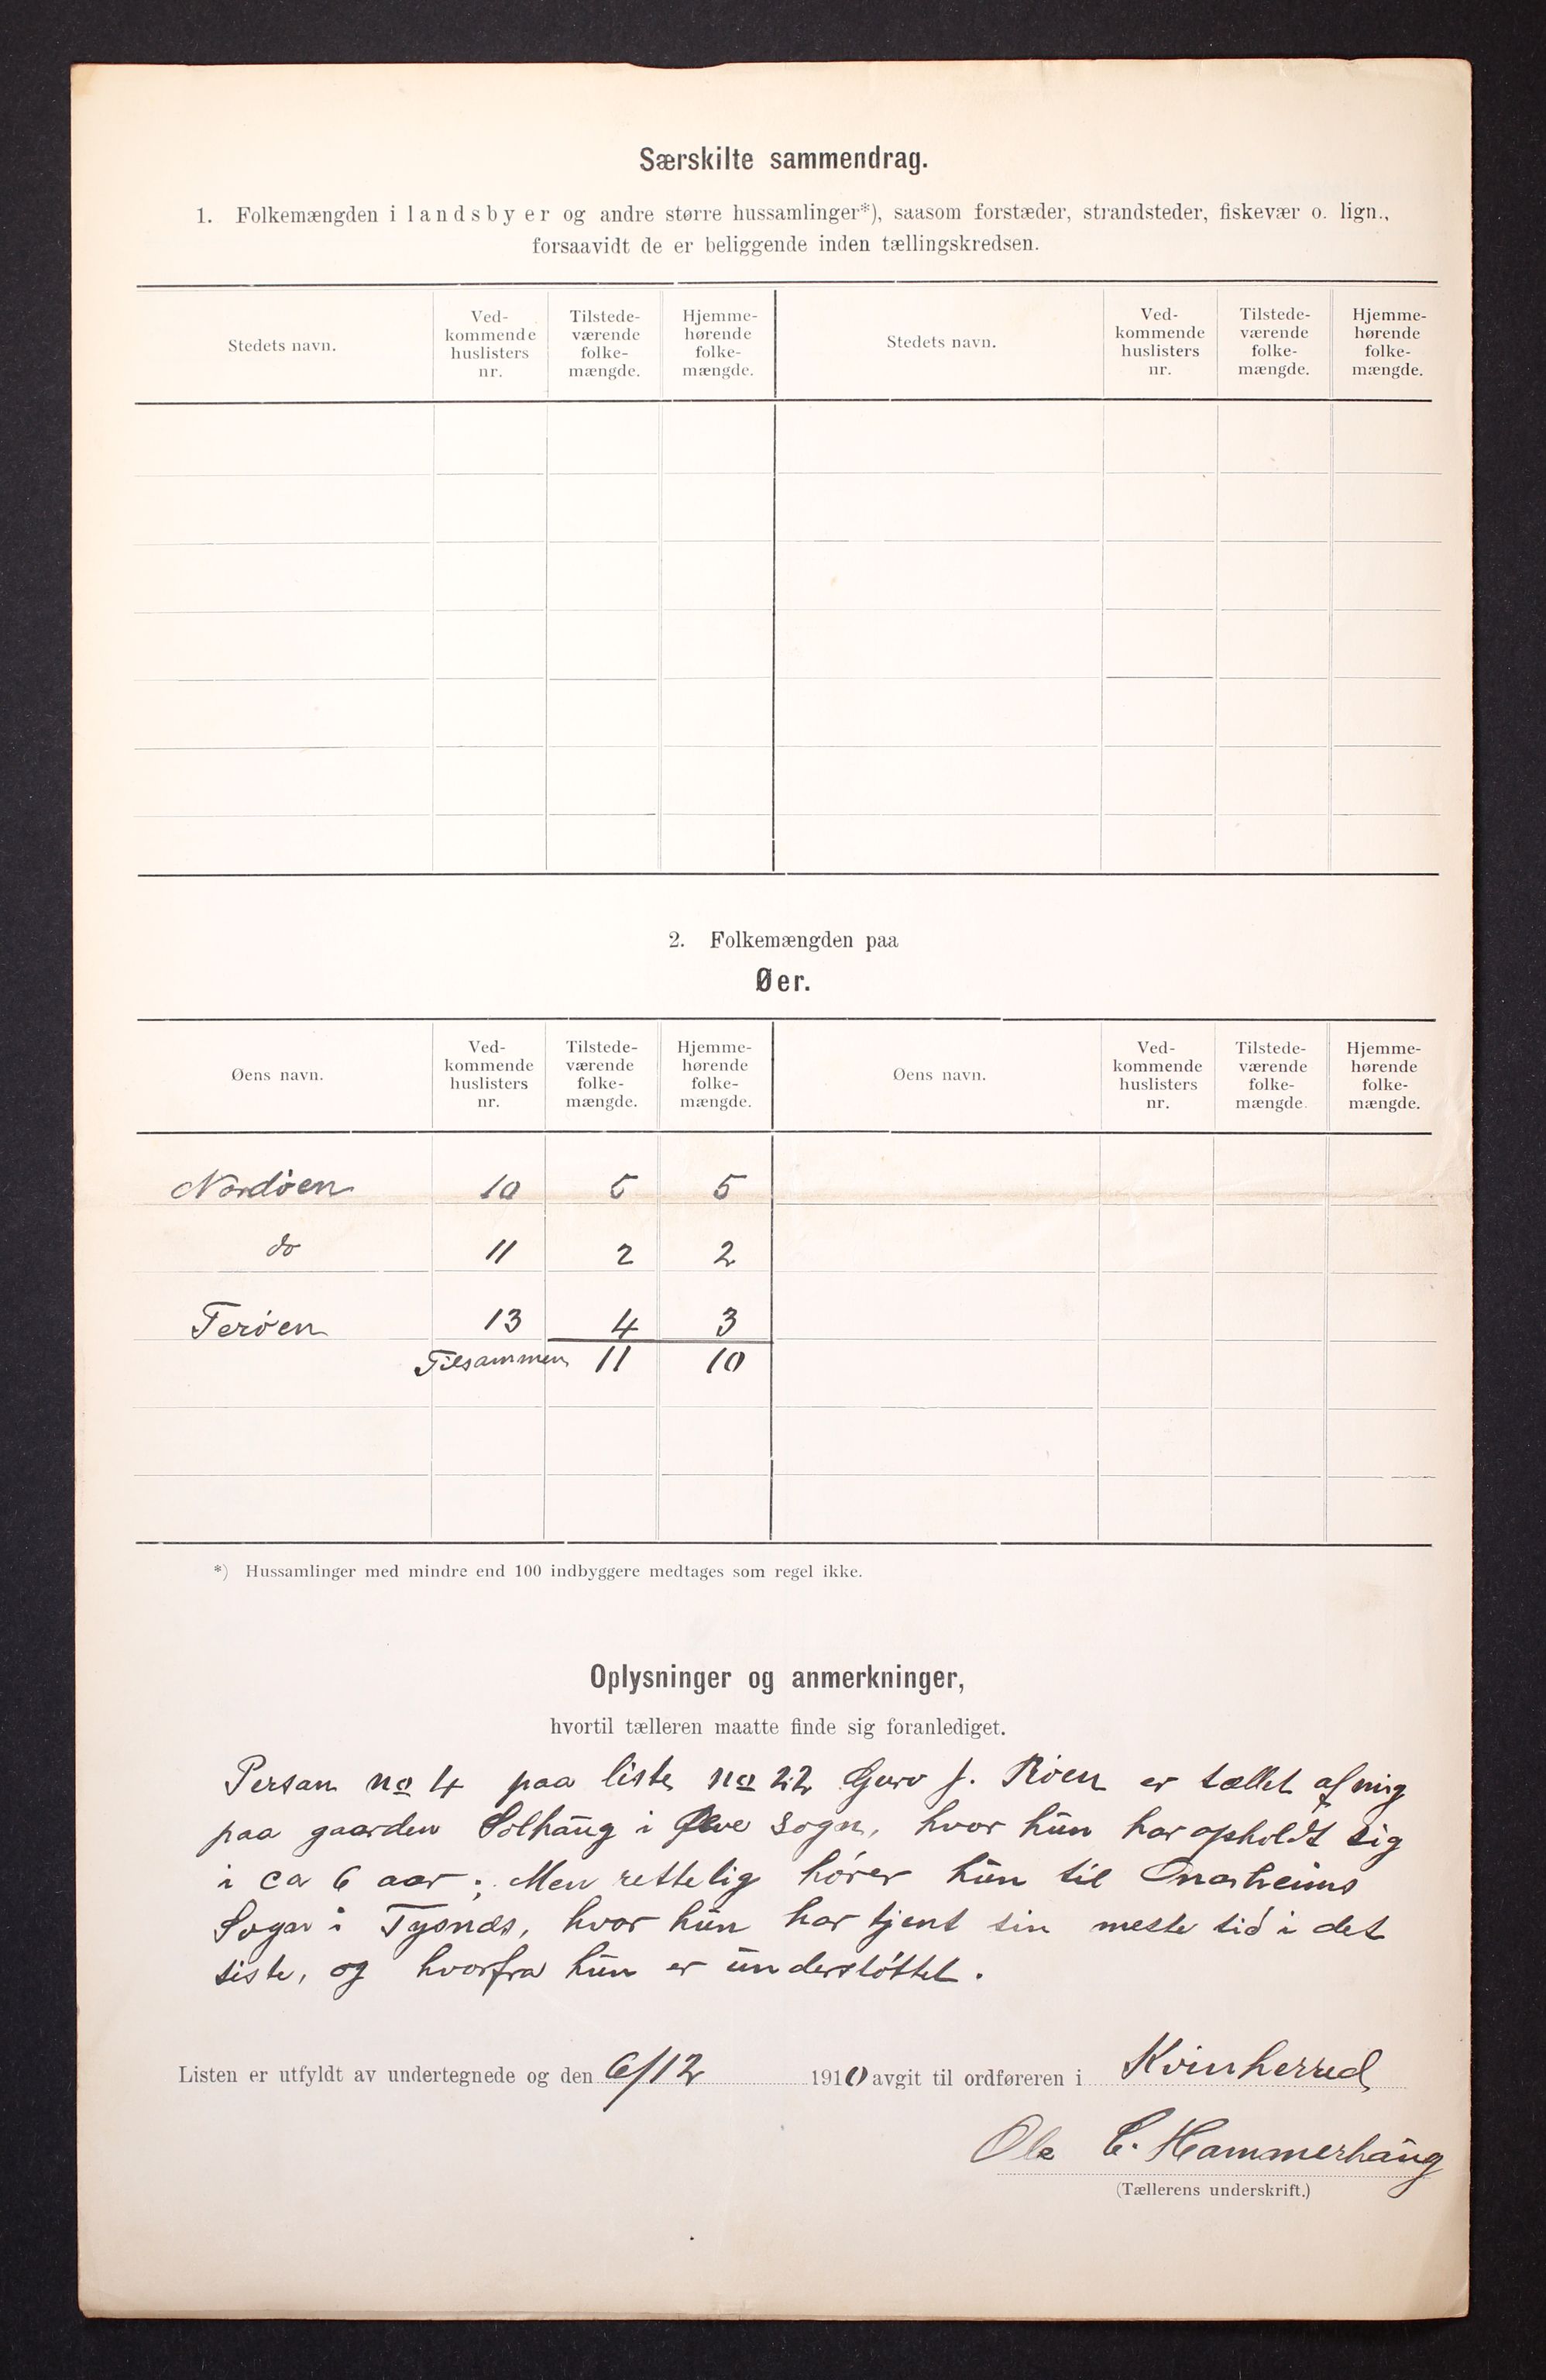 Særskilte sammendrag.
1. Folkemængden i landsbyer og andre større hussamlinger*), saasom forstæder, strandsteder, fiskevær o. lign.,
forsaavidt de er beliggende inden tællingskredsen.
Stedets navn. Ved-kommende huslisters nr. Tilstede-værende folke-mængde. Hjemme-hørende folke-mængde. Stedets navn. Ved-kommende huslisters nr. Tilstede-værende folke-mængde. Hjemme-hørende folke-mængde.
2. Folkemængden paa
Øer.
Øens navn. Ved-kommende huslisters nr. Tilstede-værende folke-mængde. Hjemme-hørende folke-mængde. Øens navn. Ved-kommende huslisters nr. Tilstede-værende folke-mængde. Hjemme-hørende folke-mængde.
Nordöen 10 5 5
do 11 2 2
Teröen 13 4 3
Tilsammen 11 10
*) Hussamlinger med mindre end 100 indbyggere medtages som regel ikke.
Oplysninger og anmerkninger,
hvortil tælleren maatte finde sig foranlediget.
Person no 4 paa liste no 22 Guro J. er tællet af mig
paa gaarden Solhaug i Ølve sogn, hvor hun har opholdt sig
i ca 6 aar; Men rettelig hører hun til Onarheims
Sogn i Tysnæs, hvor hun har tjent sin meste tid i det
siste, og hvorfra hun er understöttet.
Listen er utfyldt av undertegnede og den 6/12 1910 avgit til ordføreren i Kvinherred
Ole C. Hammerhaug
(Tællerens underskrift.)